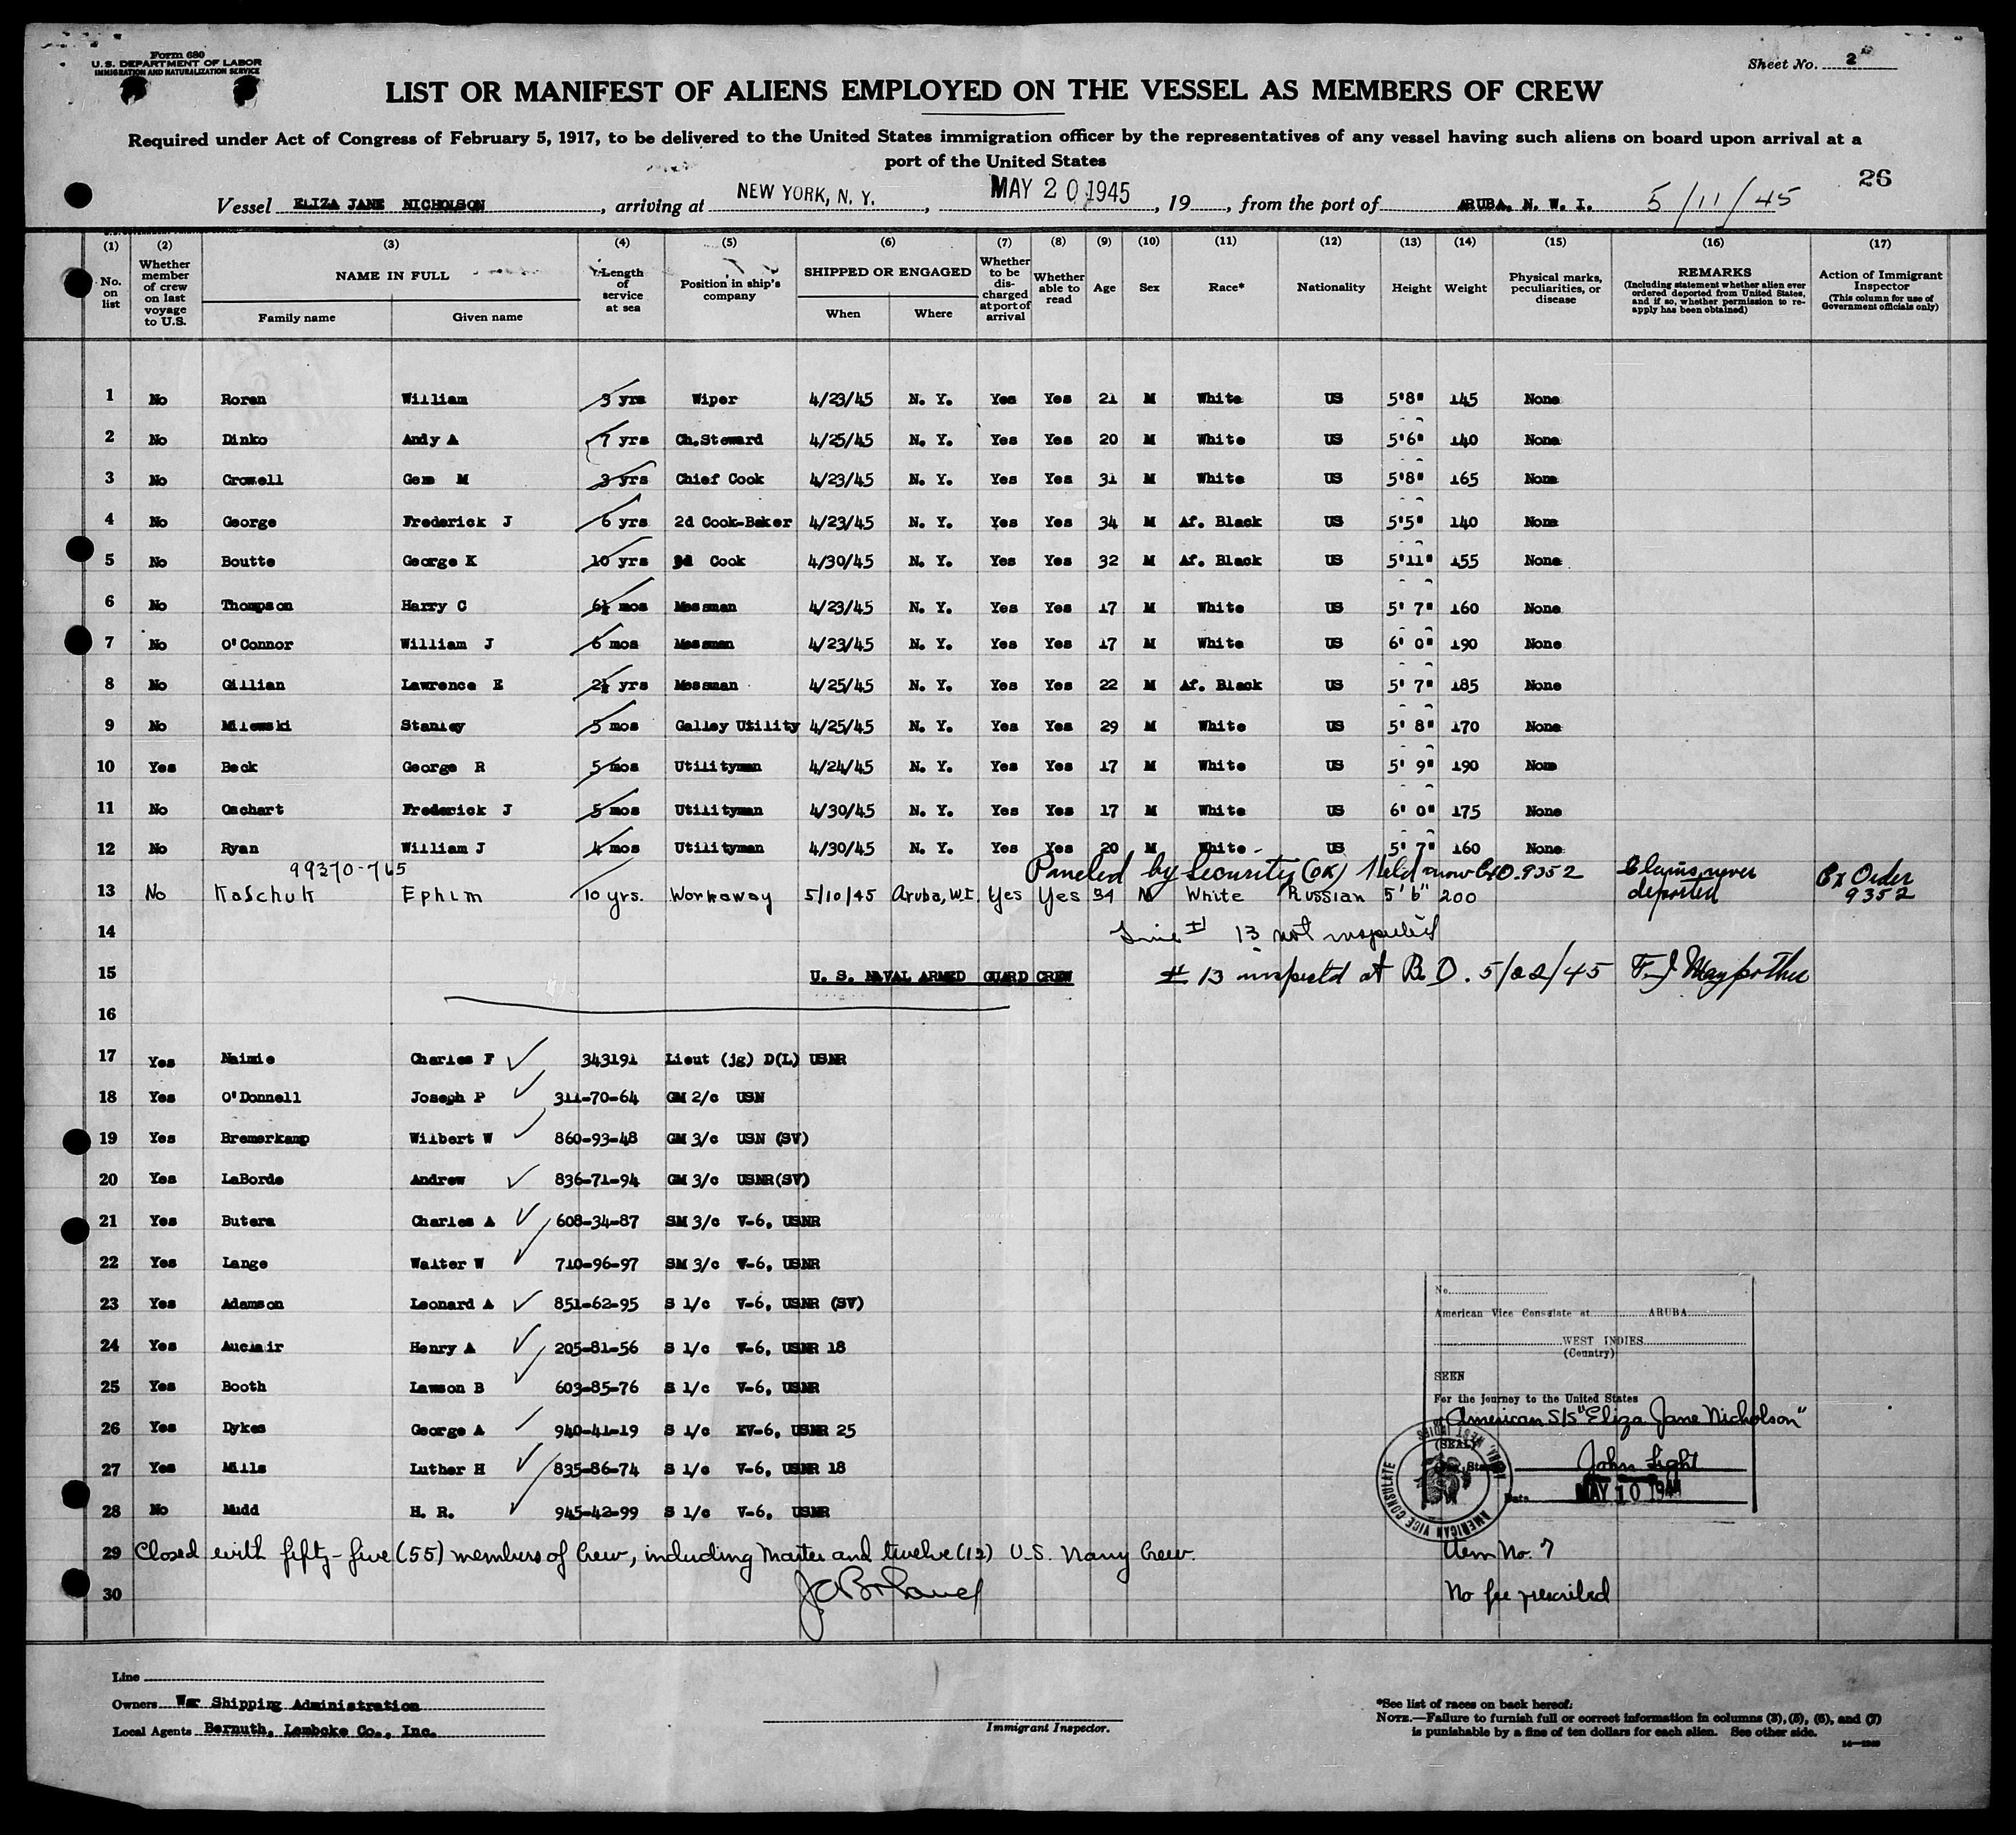 Form 680
U. S. DEPARTMENT OF LABOR
IMMIGRATION AND NATURALIZATION SERVICE
Sheet No. 2
LIST OR MANIFEST OF ALIENS EMPLOYED ON THE VESSEL AS MEMBERS OF CREW
Required under Act of Congress of February 5, 1917, to be delivered to the United States immigration officer by the representatives of any vessel having such aliens on board upon arrival at a
port of the United States
26
Vessel ELIZA JANE NICHOLSON, arriving at NEW YORK, N. Y., MAY 20 1945, 19, from the port of ARUBA, N. W. I. 5/11/45
(1) (2) (3) (4) (5) (6) (7) (8) (9) (10) (11) (12) (13) (14) (15) (16) (17)
No. on list
Whether member of crew on last voyage to U.S.
NAME IN FULL
Family name Given name
Length of service at sea
Position in ship's company
SHIPPED OR ENGAGED
When Where
Whether to be discharged at port of arrival
Whether able to read
Age
Sex
Race*
Nationality
Height
Weight
Physical marks, peculiarities, or disease
REMARKS
(Including statement whether alien ever ordered deported from United States, and if so, whether permission to reapply has been obtained)
Action of Immigrant Inspector
(This column for use of Government officials only)
1 No Roren William 3 yrs Wiper 4/23/45 N. Y. Yes Yes 21 M White US 5'8" 145 None
2 No Dinko Andy A 7 yrs Ch.Steward 4/25/45 N. Y. Yes Yes 20 M White US 5'6" 140 None
3 No Crowell Gem M 3 yrs Chief Cook 4/23/45 N. Y. Yes Yes 31 M White US 5'8" 165 None
4 No George Frederick J 6 yrs 2d Cook-Baker 4/23/45 N. Y. Yes Yes 34 M Af. Black US 5'5" 140 None
5 No Boutte George K 10 yrs 3d Cook 4/30/45 N. Y. Yes Yes 32 M Af. Black US 5'11" 155 None
6 No Thompson Harry C 6½ mos Messman 4/23/45 N. Y. Yes Yes 17 M White US 5' 7" 160 None
7 No O'Connor William J 6 mos Messman 4/23/45 N. Y. Yes Yes 17 M White US 6' 0" 190 None
8 No Gillian Lawrence E 2½ yrs Messman 4/25/45 N. Y. Yes Yes 22 M Af. Black US 5' 7" 185 None
9 No Milewski Stanley 5 mos Galley Utility 4/25/45 N. Y. Yes Yes 29 M White US 5' 8" 170 None
10 Yes Beck George R 5 mos Utilityman 4/24/45 N. Y. Yes Yes 17 M White US 5' 9" 190 None
11 No Oachart Frederick J 5 mos Utilityman 4/30/45 N. Y. Yes Yes 17 M White US 6' 0" 175 None
12 No Ryan William J 4 mos Utilityman 4/30/45 N. Y. Yes Yes 20 M White US 5' 7" 160 None
99370-765 by Security (OK) Held 9352 Claims never deported Ex Order 9352
13 No Kaschuk Ephim 10 yrs. Workaway 5/10/45 Aruba, W.I. Yes Yes 34 M White Russian 5' 6" 200
14 Line # 13 not inspected
15 U. S. NAVAL ARMED GUARD CREW # 13 inspectd at B.O. 5/22/45
16
17 Yes Naimie Charles F 343191 Lieut (jg) D(L) USNR
18 Yes O'Donnell Joseph P 311-70-64 GM 2/c USN
19 Yes Bremerkamp Wilbert W 860-93-48 GM 3/c USN (SV)
20 Yes LaBorde Andrew 836-71-94 GM 3/c USNR(SV)
21 Yes Butera Charles A 608-34-87 SM 3/c V-6, USNR
22 Yes Lange Walter W 710-96-97 SM 3/c V-6, USNR
23 Yes Adamson Leonard A 851-62-95 S 1/c V-6, USNR (SV)
24 Yes Auclair Henry A 205-81-56 S 1/c V-6, USNR 18
25 Yes Booth Lawson B 603-85-76 S 1/c V-6, USNR
26 Yes Dykes George A 940-41-19 S 1/c KV-6, USNR 25
27 Yes Mills Luther H 835-86-74 S 1/c V-6, USNR 18
28 No Mudd H. R. 945-42-99 S 1/c V-6, USNR
29 Closed with fifty-five (55) members of Crew, including Master and twelve (12) U.S. Navy Crew.
30
No.
American Vice Consulate at ARUBA
WEST INDIES
(Country)
SEEN
For the journey to the United States
American S/S "Eliza Jane Nicholson"
(SEAL)
John Light
Date MAY 10 194
AMERICAN VICE CONSULATE ARUBA, WEST INDIES
Item No. 7
No fee prescribed
Line
Owners War Shipping Administration
Local Agents Bernuth, Lembcke Co., Inc.
Immigrant Inspector.
*See list of races on back hereof.
NOTE.—Failure to furnish full or correct information in columns (3), (5), (6), and (7)
is punishable by a fine of ten dollars for each alien. See other side.